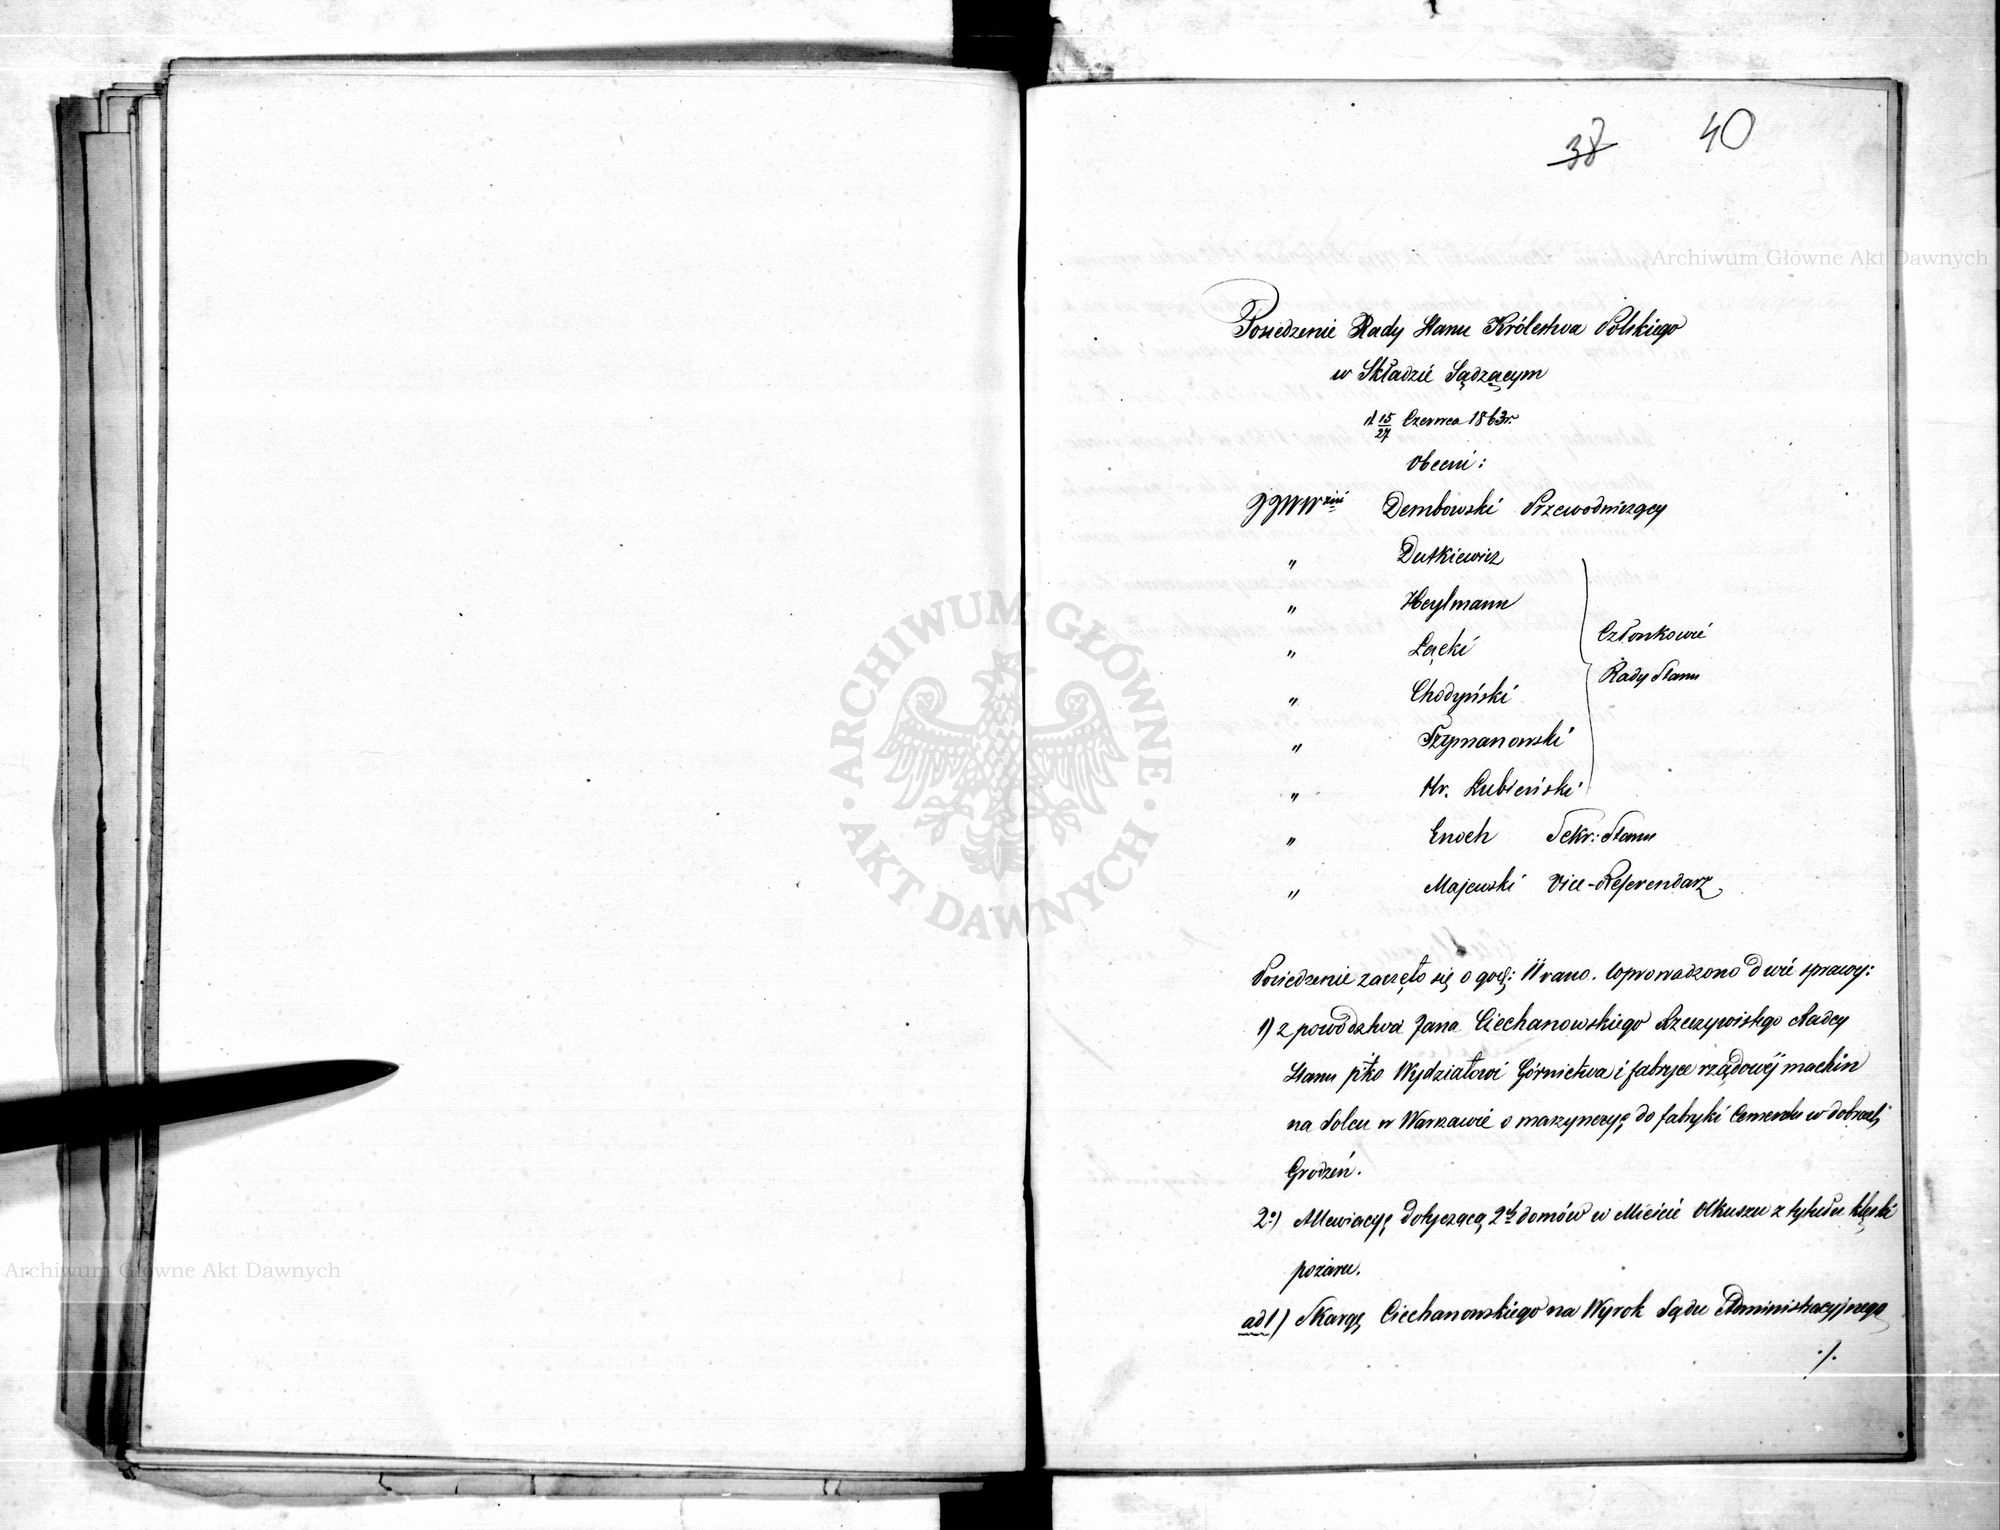 38 40
Posiedzenie Rady Stanu Królestwa Polskiego
w Składzie Sądzącym
d 15/27 Czerwca 1863r.
Obecni:
JJWW Dembowski Przewodniczący
" Dutkiewicz
" Heylmann
" Łącki
" Chodyński
" Szymanowski
" Hr. Łubieński
Członkowie
Rady Stanu
" Enoch Sekr: Stanu
" Majewski Vice-Referendarz
Posiedzenie zaczęło się o godz: 11 rano. Wprowadzono dwie sprawy:
1) z powództwa Jana Ciechanowskiego Rzeczywistego Radcy
Stanu p'ko Wydziałowi Górnictwa i fabryce rządowéj machin
na Solcu w Warszawie o maszyneryę do fabryki Cementu w dobrach
Grodzeń.
2o) Allewiacyę dotyczącą 2ch domów w Mieście Olkuszu z tytułu klęski
pożaru.
ad 1) Skargę Ciechanowskiego na Wyrok Sądu Administracyjnego
./.
Archiwum Główne Akt Dawnych
Archiwum Główne Akt Dawnych
ARCHIWUM GŁÓWNE
AKT DAWNYCH